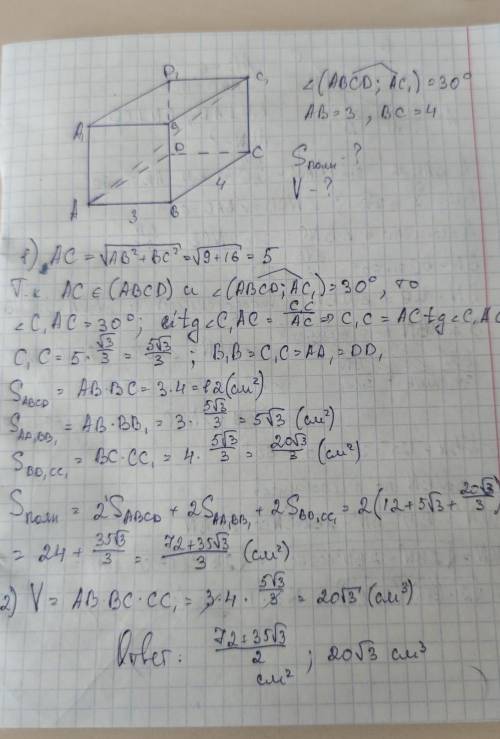 D₁ C₁
A₁ B₁ D C
A 3 B 4
∠(ABCD; AC₁) = 30°
AB = 3, BC = 4
Sполн - ?
V - ?
1) AC = √(AB² + BC²) = √(9+16) = 5
Т.к AC ∈ (ABCD) и ∠(ABCD; AC₁) = 30°, то
∠C₁AC = 30°; tg∠C₁AC = C₁C/AC ⇒ C₁C = AC tg∠C₁AC
C₁C = 5·√3/3 = 5√3/3; B₁B = C₁C = AA₁ = DD₁
S_ABCD = AB·BC = 3·4 = 12 (см²)
S_AA₁BB₁ = AB·BB₁ = 3·5√3/3 = 5√3 (см²)
S_BB₁CC₁ = BC·CC₁ = 4·5√3/3 = 20√3/3 (см²)
Sполн = 2S_ABCD + 2S_AA₁BB₁ + 2S_BB₁CC₁ = 2(12 + 5√3 + 20√3/3)
= 24 + 35√3/3 = 72+35√3/3 (см²)
2) V = AB·BC·CC₁ = 3·4·5√3/3 = 20√3 (см³)
Ответ: 72+35√3/2 ; 20√3 см³
см²